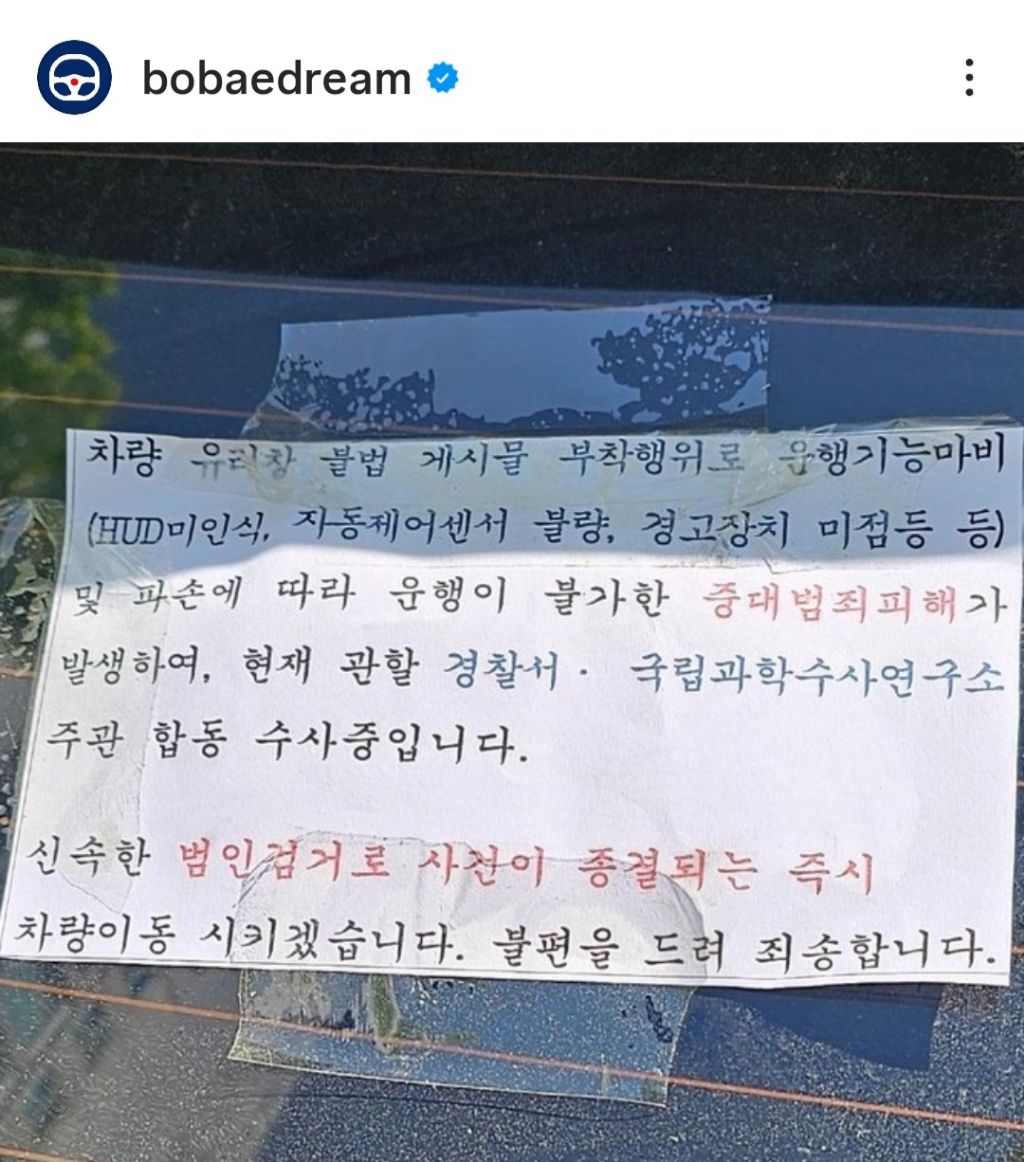 bobaedream
차량 유리창 불법 게시물 부착행위로 운행기능마비
(HUD미인식, 자동제어센서 불량, 경고장치 미점등 등)
및 파손에 따라 운행이 불가한 중대범죄피해가
발생하여, 현재 관할 경찰서· 국립과학수사연구소
주관 합동 수사중입니다.
신속한 범인검거로 사건이 종결되는 즉시
차량이동 시키겠습니다. 불편을 드려 죄송합니다.